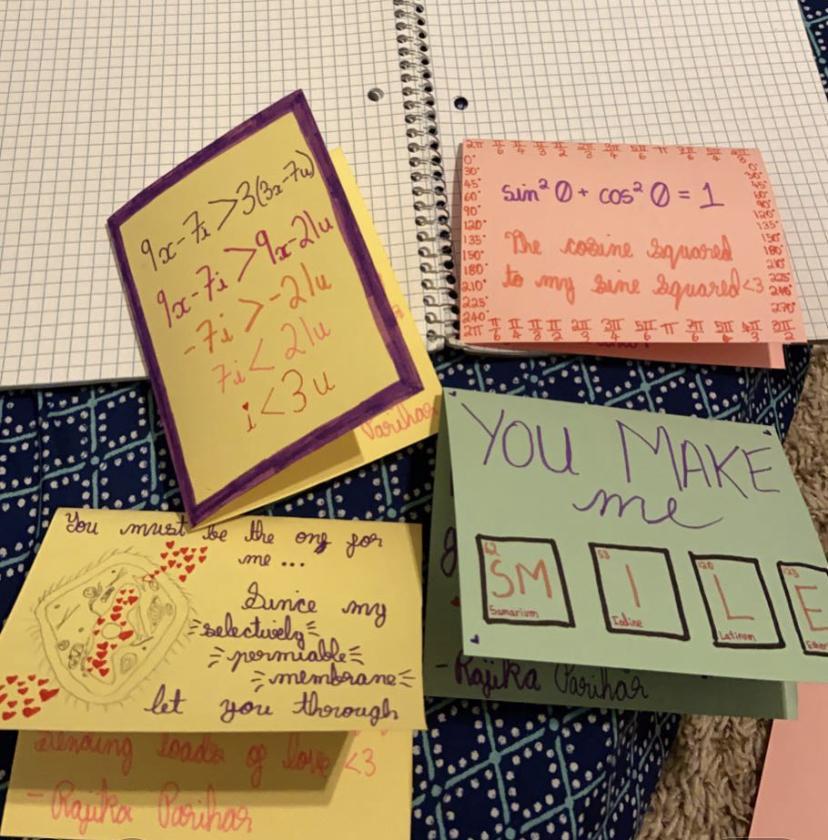 9x-7i > 3(3x-7u)
9x-7i > 9x-21u
-7i > -21u
7i < 21u
i < 3 u
Parihar
2π π/6 π/4 π/3 π/2 2π/3 3π/4 5π/6 π 7π/6 5π/4 4π/3
0°
30°
45°
60°
90°
120°
135°
150°
180°
210°
225°
240°
sin² θ + cos² θ = 1
The cosine squared
to my sine squared <3
0°
30°
45°
60°
90°
120°
135°
150°
180°
210°
225°
240°
270°
2π π/6 π/4 π/3 π/2 2π/3 3π/4 5π/6 π 7π/6 5π/4 4π/3 3π/2
YOU MAKE
me
62
SM
Samarium
53
I
Iodine
120
L
Latinum
E
- Rajika Parihar
You must be the one for
me ...
Since my
selectively
permiable
membrane
let you through
Sending loads of love <3
- Rajika Parihar